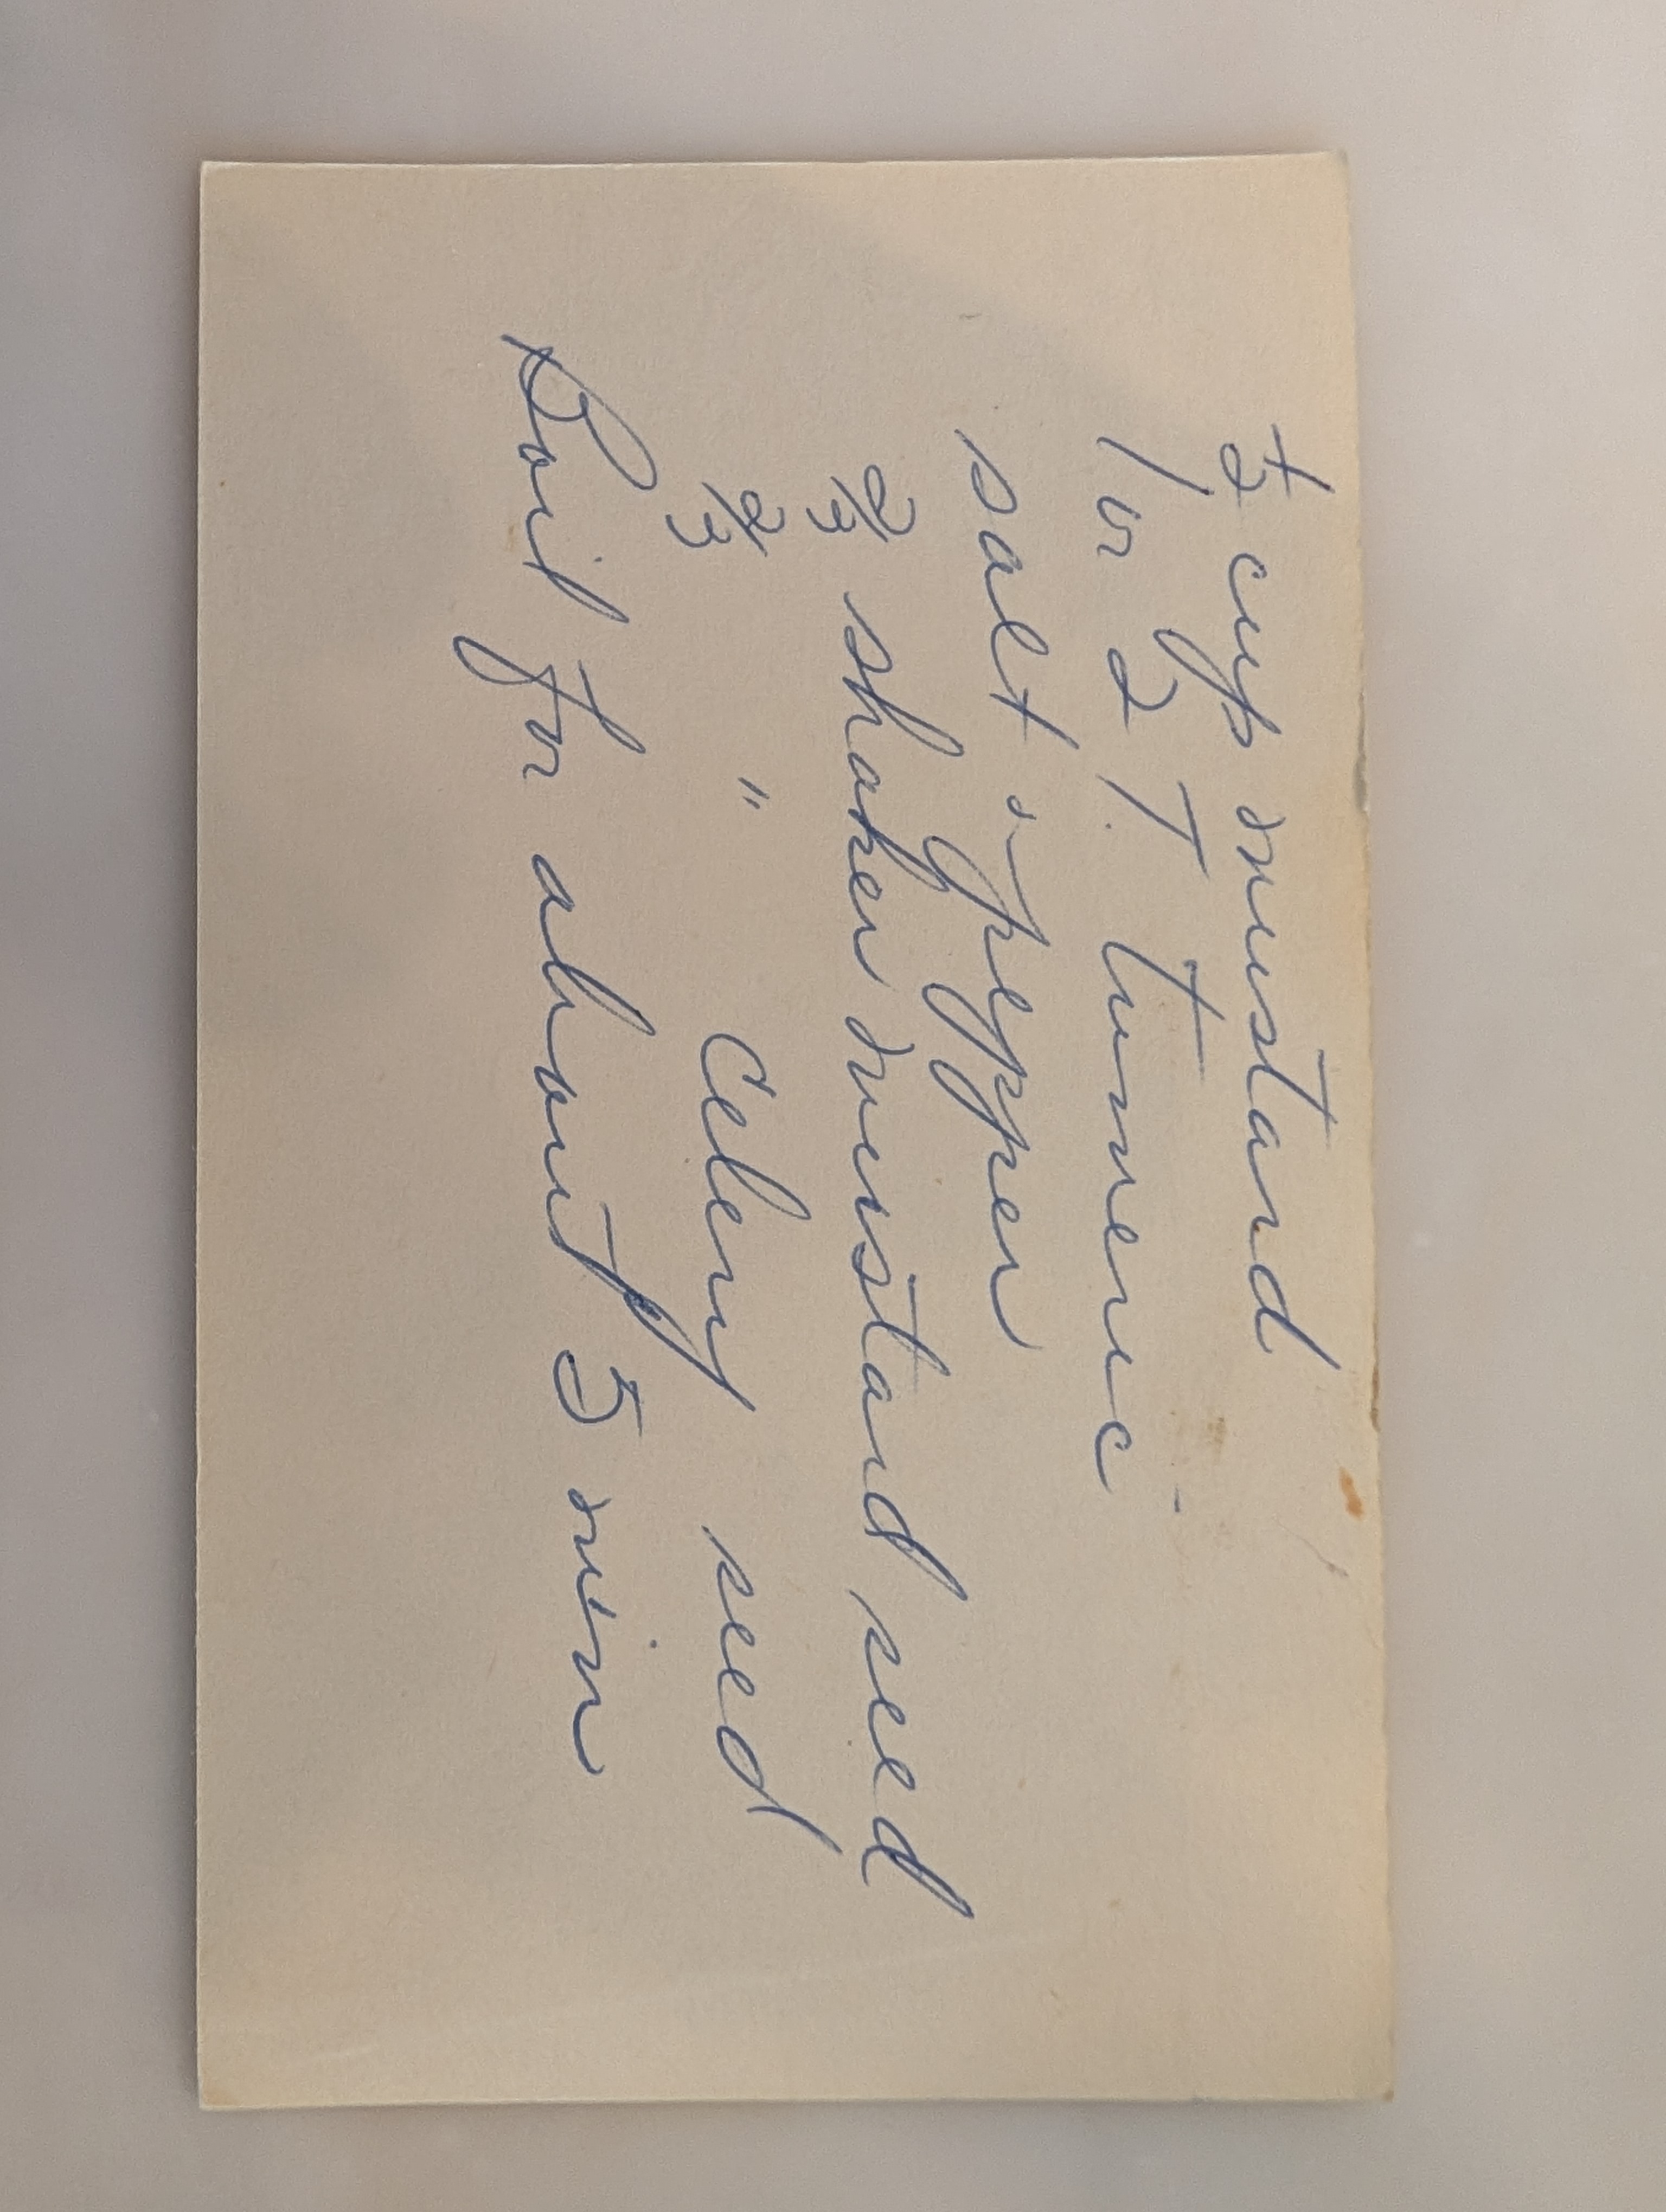 ½ cup mustard
1 or 2 T. tumeric
salt & pepper
2/3 shaker mustard seed
2/3 " Celery seed
Boil for about 5 min